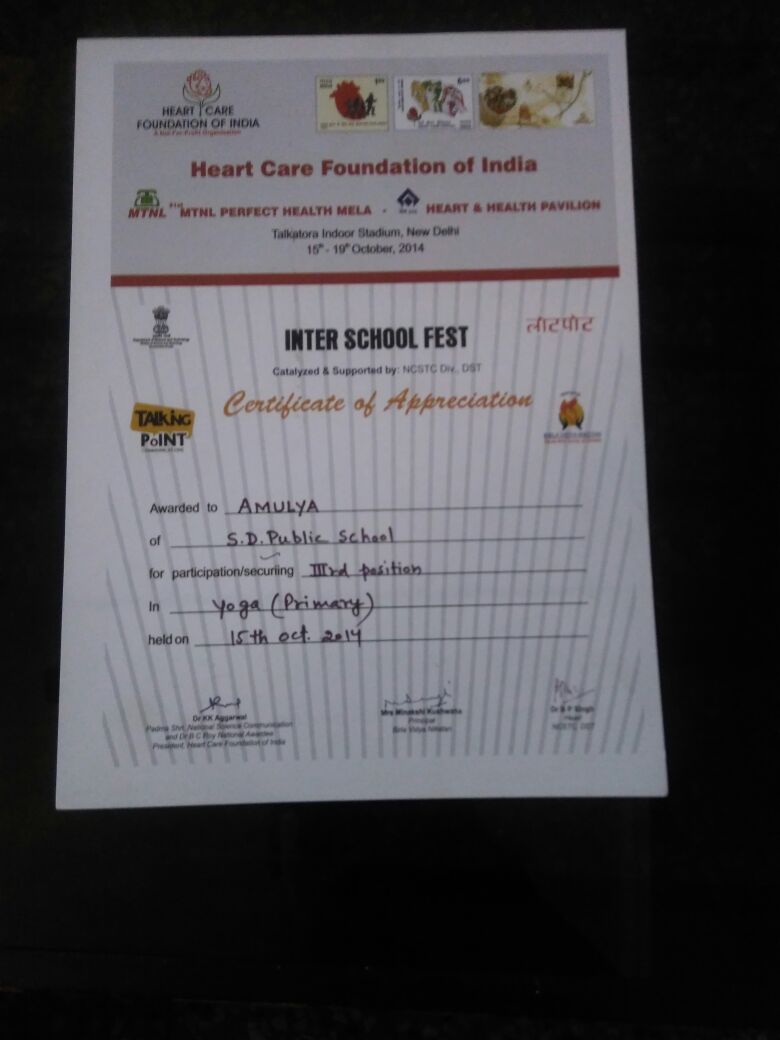 HEART CARE
FOUNDATION OF INDIA
A Not For Profit Organisation
Heart Care Foundation of India
MTNL 21st MTNL PERFECT HEALTH MELA - HEART & HEALTH PAVILION
Talkatora Indoor Stadium, New Delhi
15th - 19th October, 2014
INTER SCHOOL FEST
लोटपोट
Catalyzed & Supported by: NCSTC Div., DST
Certificate of Appreciation
TALKING
PoINT
Awarded to AMULYA
of S.D. Public School
for participation/securing IIIrd position
In Yoga (Primary)
held on 15th oct. 2014
Dr KK Aggarwal
Padma Shri, National Science Communication
and Dr B C Roy National Awardee
President, Heart Care Foundation of India
Mrs Minakshi Kushwaha
Principal
Birla Vidya Niketan
Dr B P Singh
Head
NCSTC DST